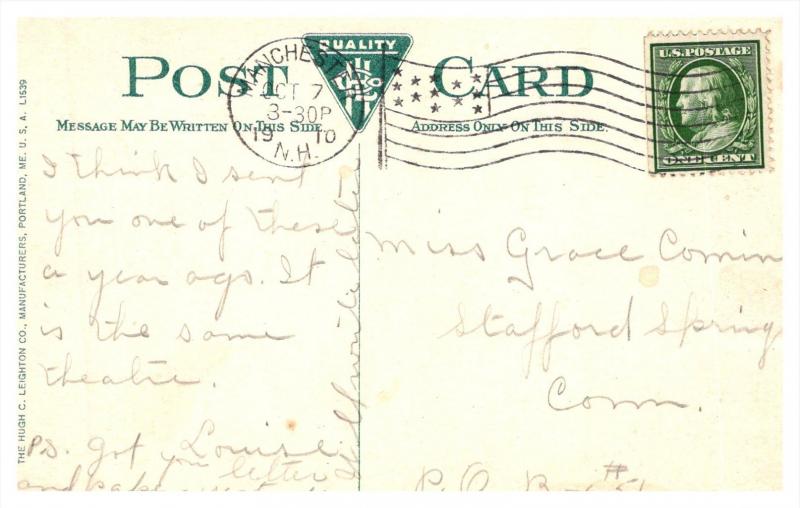 POST CARD
QUALITY
MANCHESTER
OCT 7
3-30P
19 10
N.H.
U.S. POSTAGE
ONE CENT
MESSAGE MAY BE WRITTEN ON THIS SIDE
ADDRESS ONLY ON THIS SIDE.
THE HUGH C. LEIGHTON CO., MANUFACTURERS, PORTLAND, ME. U. S. A. L1539
I think I sent
you one of these
a year ago. It
is the same
theatre.
Louise.
PS. got your letter
and
write later
Miss Grace Comin
Stafford Spring
Conn.
P.O. B #